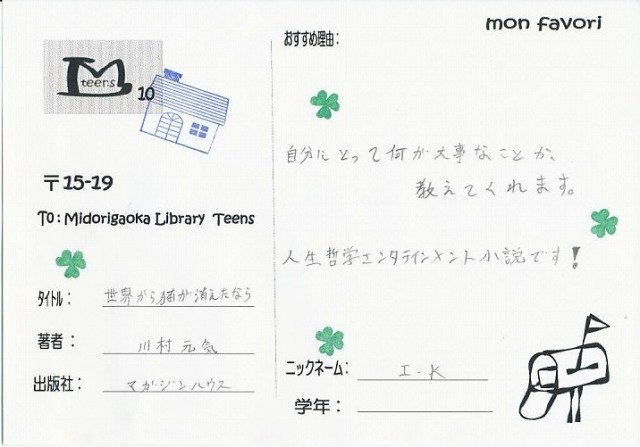 mon favori
teens
10
〒15-19
To: Midorigaoka Library Teens
タイトル: 世界から猫が消えたなら
著者: 川村元気
出版社: マガジンハウス
おすすめ理由:
自分にとって何が大事なことか、
教えてくれます。
人生哲学エンタテインメント小説です!
ニックネーム: I・K
学年: